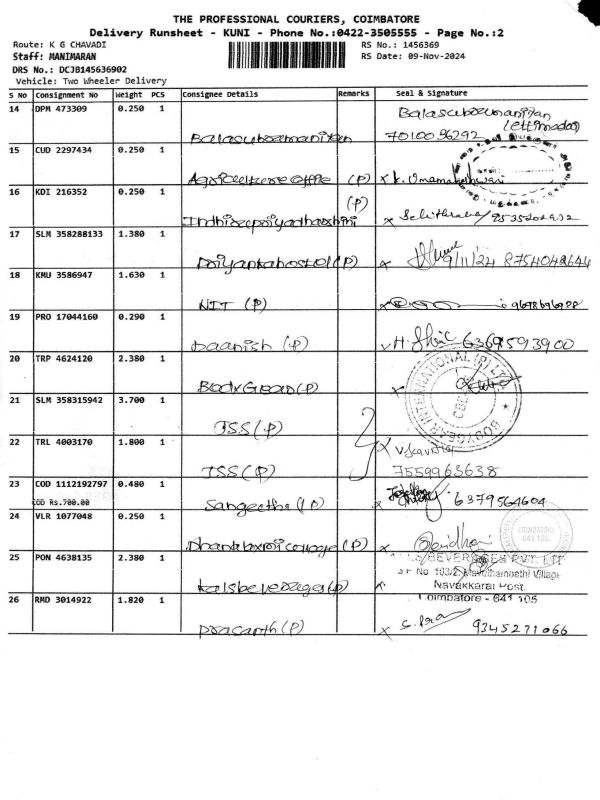 THE PROFESSIONAL COURIERS, COIMBATORE
Delivery Runsheet - KUNI - Phone No.:0422-3505555 - Page No.:2
Route: K G CHAVADI
RS No.: 1456369
Staff: MANIMARAN
RS Date: 09-Nov-2024
DRS No.: DCJB145636902
Vehicle: Two Wheeler Delivery
S No Consignment No Weight PCS Consignee Details Remarks Seal & Signature
14 DPM 473309 0.250 1 Balasubramaniyan
Balasubramaniyan
(ettimadai)
7010096292
15 CUD 2297434 0.250 1 Agriculture office (P) x
16 KDI 216352 0.250 1 (P) x
17 SLM 358288133 1.380 1 Priyanka hostel (P) x 9/11/24 8754048644
18 KMU 3586947 1.630 1 NIT (P) x
19 PRO 17044160 0.290 1 Daanish (P) 6369593900
20 TRP 4624120 2.380 1 Body Gear (P) x
BODYGEAR INTERNATIONAL (P) LTD
21 SLM 358315942 3.700 1 JSS (P)
22 TRL 4003170 1.800 1 JSS (P) x
7559963638
23 COD 1112192797 0.480 1 Sangeetha (P) 6379564604
COD Rs.700.00
24 VLR 1077048 0.250 1 Dhanalaxmi college (P) x
COIMBATORE
641 105
25 PON 4638135 2.380 1 kals beverages (P) x
BEVERAGES PVT. LTD
S F No 103/2, Mavuthampathi Village
Navakkarai Post,
Coimbatore - 641 105
26 RMD 3014922 1.820 1 prasanth (P) x 9345271066